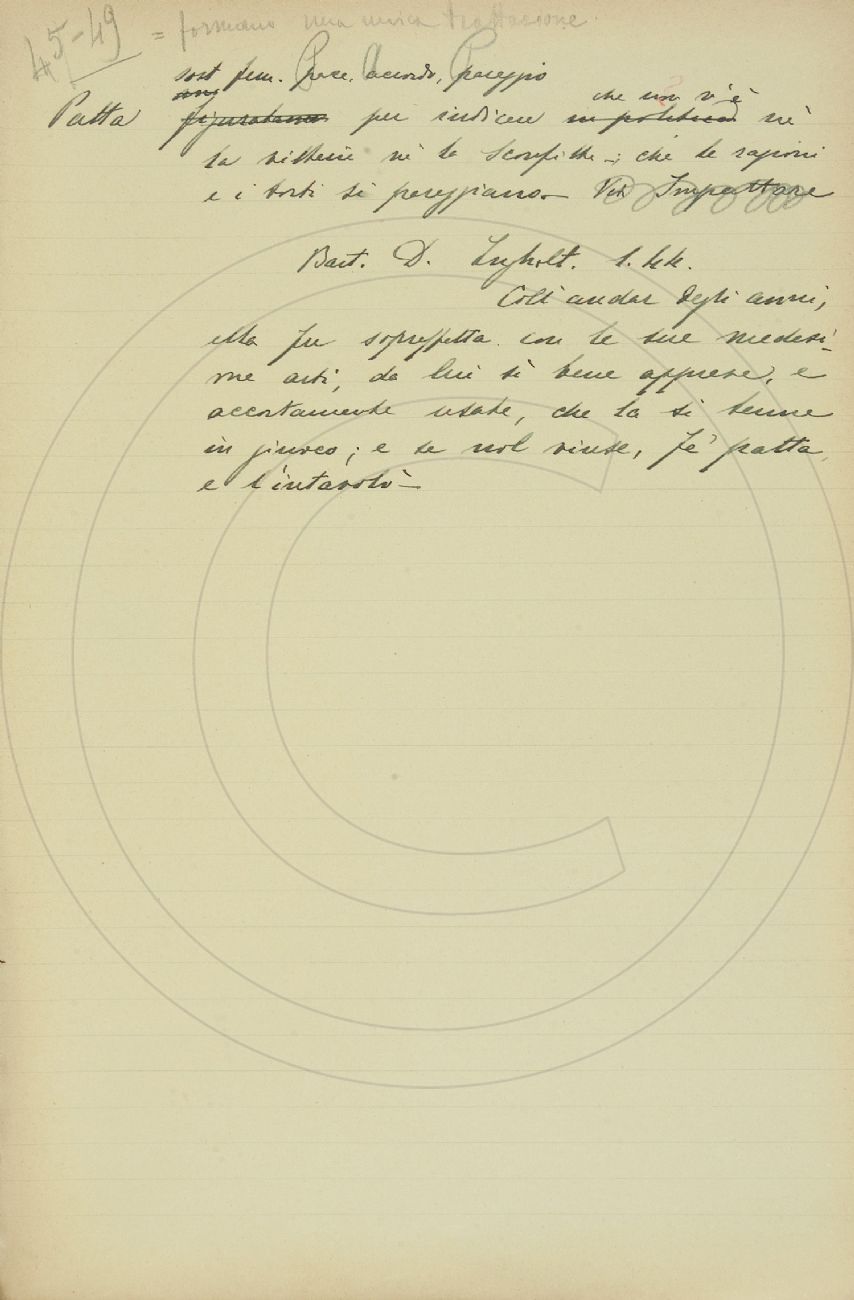 45-49 = formano una unica trattazione.
sost fem. Pace. Accordo, Pareggio
Patta figuratam. per indicare in politica che non v'è nè
la vittoria nè la sconfitta -; che le ragioni
e i torti si pareggiano - Ved Impattare
Bart. D. Inghilt. 1. 44.
Coll'andar degli anni,
ella fu sopraffatta con le sue medesi-
me arti, da lui sì bene apprese, e
accortamente usate, che la si tenne
in giuoco; e se nol vinse, fe' patta,
e l'intavolò -